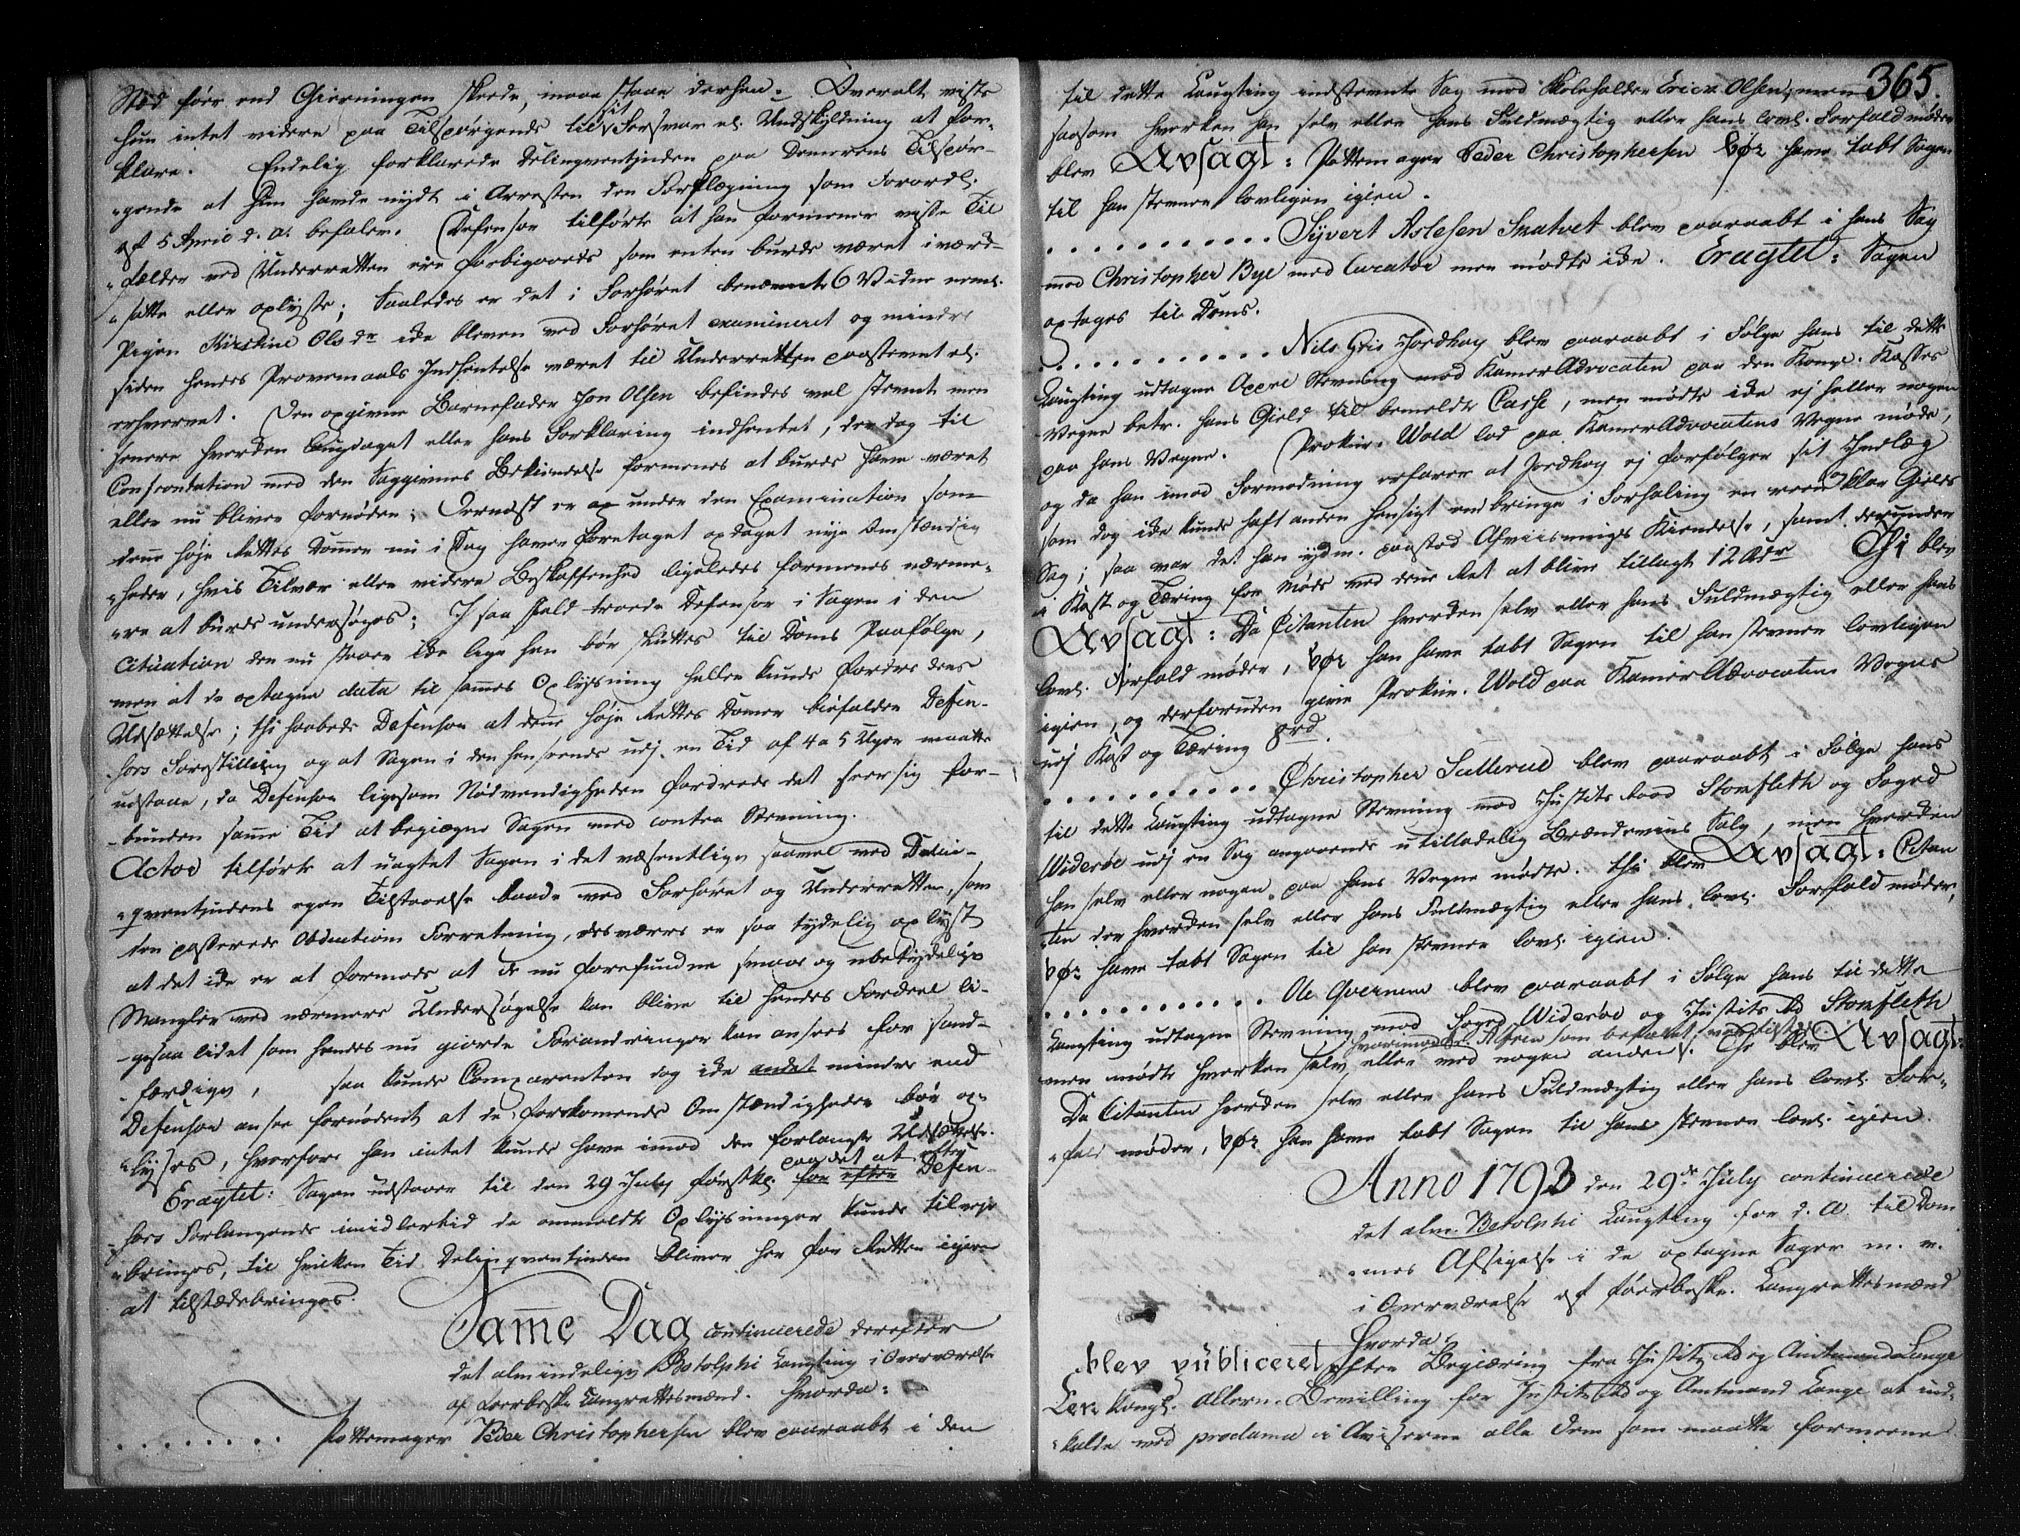 Stød føer end Gierningen skeede, maae staae derhen. Overalt viste
hun intet videre paa Tilspørgende til sit Forsvar el. Undskyldning at for-
klare. Endelig forklarede Delinqventinden paa Dommerens Tilspør-
gende at hun havde nydt i Arresten den Forplægning som Forordn.
af 5 April d. A. befaler. Defensor tilførte at han formener visse Til
fælder ved Underretten ere forbigaaede som enten burde været iværk-
satte eller oplyste; Saaledes er det i Forhøret benævnte 6 Vidne neml.
Pigen Kirstine Olsdr ikke bleven ved Forhøret examineret og mindre
siden hendes Provemaals Indhentelse været til Underretten paastevnt el.
erhvervet. Den opgivne Barnefader Jon Olsen befindes vel stevnt men
senere hverken Laugdaget eller hans Forklaring indhentet, der dog til
Confrontation med den Saggivnes Bekiendelse formenes at burde have været
eller nu bliver fornøden; Dernæst er og under den Examination som
denne høje Rettes Dommer nu i Dag haver foretaget opdaget nye Omstændig
heder, hvis Tilvær eller videre Beskaffenhed ligeledes formenes nærme-
re at burde undersøges; I saa Fald troede Defensor i Sagen i den
Situation den nu staaer ikke lige hen bør skuttes til Doms Paafølge,
men at de optagne data til sammes Oplysning heller kunde fordre dens
Udsættelse; thi haabede Defensor at denne høje Rettes Dommer bifalder Defen-
sors Forestilling og at Sagen i den henseende udj en Tid af 4 a 5 Uger maatte
udstaae, da Defensor ligesom Nødvendigheden fordrede det seer sig for-
bunden samme Tid at begiegne Sagen med contra Stevning.
Actor tilførte at uagtet Sagen i det væsentlige saavel ved Delin-
qventindens egen Tilstaaelse baade ved Forhøret og Underretten, som
den passerede Obductions Forretning, desværre er saa tydelig oplyst
at det ikke er at formode at de nu forefundne smaae og ubetydelige
Mangler ved nærmere Undersøgelse kan blive til hendes Fordeel li-
gesaa lidet som hendes nu giorde Forandringer kan ansees for sand-
færdige, saa kunde Comparenten dog ikke andet mindre end
Defensor ansee fornødent at de forekomende Omstændigheder bør op-
lyses, hvorfore han intet kunde have imod den forlangte Udsættelse.
Eragtet: Sagen udstaaer til den 29 July førstk. paa det at efter for efter Defen-
sors Forlangende imidlertid de ommeldte Oplysninger kunde tilveje
bringes, til hvilken Tid Delinqventinden bliver her for Retten igien
at tilstædebringes
Samme Dag continuerede derefter
det almindelige Botolphi Laugting i Overværelse
af foerbeske. Laugrettesmænd. Hvorda:
. . . . . . . . Pottemager Peder Christophersen blev paaraabt i den
365.
til dette Laugting indstevnte Sag mod Skoleholder Erick Olsen, men
saasom hverken han selv eller hans Fuldmægtig eller hans lovl. Forfald møder
blev Avsagt: Pottemager Peder Christophersen bør have tabt Sagen
til han stevner lovligen igien.
. . . . . . . . . . . Syvert Aslesen Snatvet blev paaraabt i hans Sag
mod Christopher Bye med Curator men mødte ikke. Eragtet: Sagen
optages til Doms.
. . . . . . . . . . . Nils Gris Jordhøy blev paaraabt i Følge hans til dette
Laugting udtagne Appel Stevning mod Kamer Advocaten paa den Kongl. Kasses
Vegne betr. hans Gield til bemeldte Casse, men mødte ikke ej heller nogen
paa hans Vegne. Prokur. Wold lod paa Kamer Advocatens Vegne møde,
og da han imod Formodning erfarer at Jordhøy ej forfølger sit Indlæg
som dog ikke kunde haft anden Hensigt end bringe i Forhaling en reen og klar Gields
Sag; saa var det han ydm. paastod Afviisnings Kiendelse, samt derunder
i Kost og Tæring for Møde ved denne Ret at blive tillagt 12 Rdr Thi blev
Avsagt: Da Citanten hverken selv eller hans Fuldmægtig eller hans
lovl. Forfald møder, bør han have tabt Sagen til han stevner lovligen
igien, og derforuden give Prokur. Wold paa KamerAdvocatens Vegne
udj Kost og Tæring 8 rd.
. . . . . . . . . . . Christopher Sullerud blev paaraabt i Følge hans
til dette Laugting udtagne Stevning mod Justits Raad Stomfleth og Foged
Widerøe udj en Sag angaaende utilladelig Brændeviins Salg, men hverken
han selv eller nogen paa hans Vegne mødte. thi blev Avsagt: Citan
ten der hverken selv eller hans Fuldmægtig eller hans lovl. Forfald møder,
bør have tabt Sagen til han stevner lovl. igien.
. . . . . . . . . . . Ole Qvernene blev paaraabt i Følge hans til dette
Laugting udtagne Stevning mod Foged Widerøe og Justits Rd Stomfleth
men mødte hverken selv eller ved nogen anden. Thi blev Avsagt:
Da Citanten hverken selv eller hans Fuldmægtig eller hans lovl. For-
fald møder, bør han have tabt Sagen til hans stevner lovl. igien.
Anno 1793 den 29de July continuerede
det alm. Botolphi Laugting for d. A. til Dom
mes Afsigelse i de optagne Sager m. v.
i Overværelse af foerbeske. Laugrettesmænd
Hvorda:
blev publiceret efter Begiæring fra Justitz Rd og Amtmand Lange
Kongl. Allern. Bevilling for Justits Rd og Amtmand Lange at ind-
kalde ved proclama i Aviserne alle dem som maatte formeene